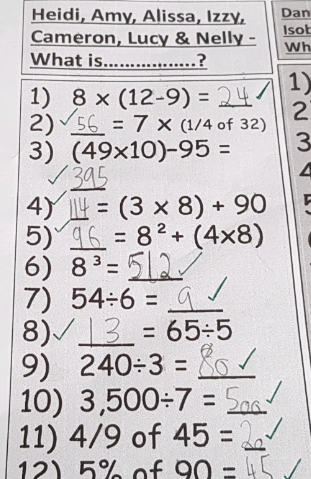 Heidi, Amy, Alissa, Izzy,
Cameron, Lucy & Nelly -
What is.................?
1) 8 × (12-9) = 24 ✓
2) ✓ 56 = 7 × (1/4 of 32)
3) (49×10)-95 =
✓ 395
4) ✓ 114 = (3 × 8) + 90
5) ✓ 96 = 8² + (4×8)
6) 8³ = 512 ✓
7) 54÷6 = 9 ✓
8) ✓ 13 = 65÷5
9) 240÷3 = 80 ✓
10) 3,500÷7 = 500 ✓
11) 4/9 of 45 = 20 ✓
12) 5% of 90 = 45 ✓
Dan
Isob
Wh
1)
2
3
4